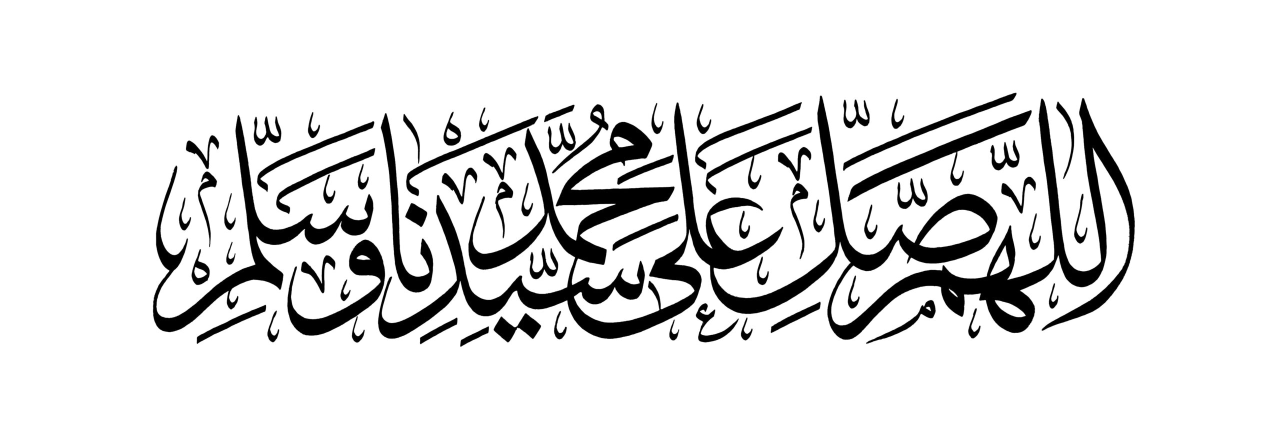 اللّٰهُمَّ صَلِّ عَلَى سَيِّدِنَا مُحَمَّدٍ وَسَلِّمْ